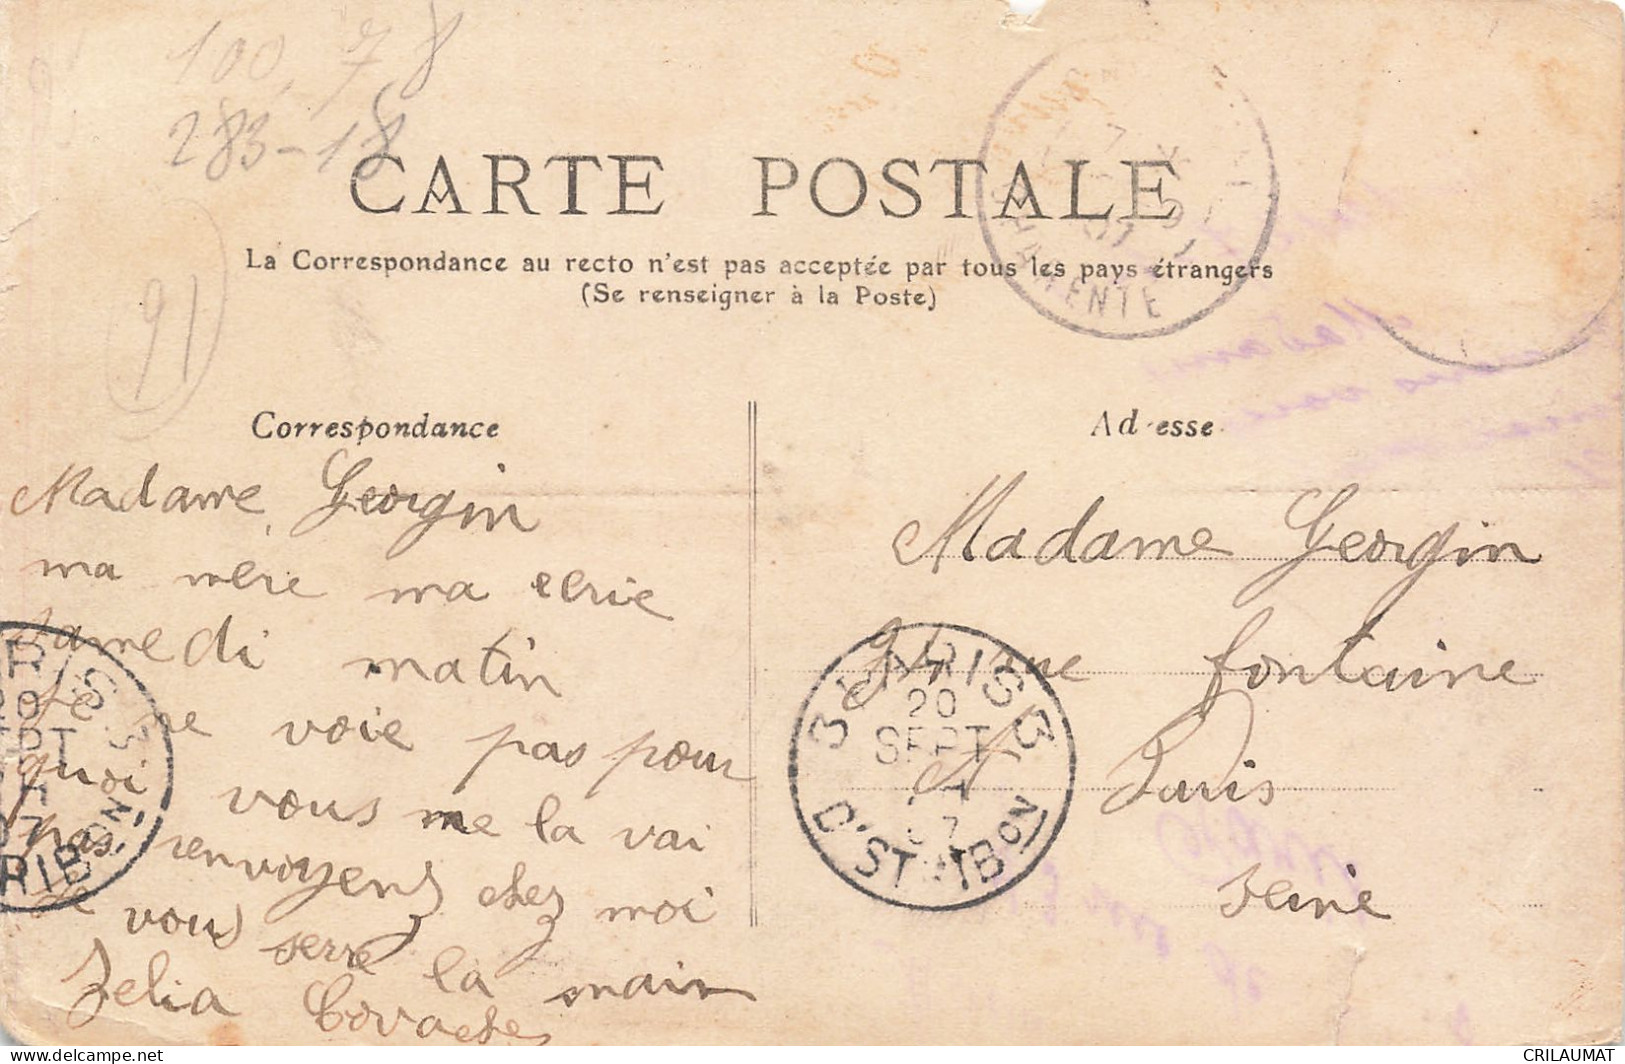 100,78
283-18
CARTE POSTALE
La Correspondance au recto n'est pas acceptée par tous les pays étrangers
(Se renseigner à la Poste)
91
CHARENTE
Correspondance
Madame Georgin
ma mère ma ecrie
Samedi matin
Je ne voie pas pour
quoi vous me la vai
pas renvoyens chez moi
Je vous serre la main
Zelia
Adresse
Madame Georgin
rue fontaine
Paris
Seine
PARIS
20
SEPT
07
D'STRIBON
3 PARIS 3
20
SEPT
07
D'STRIBON
CRILAUMAT